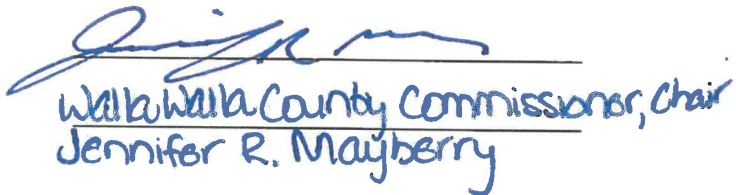 Walla Walla County Commissioner, Chair
Jennifer R. Mayberry